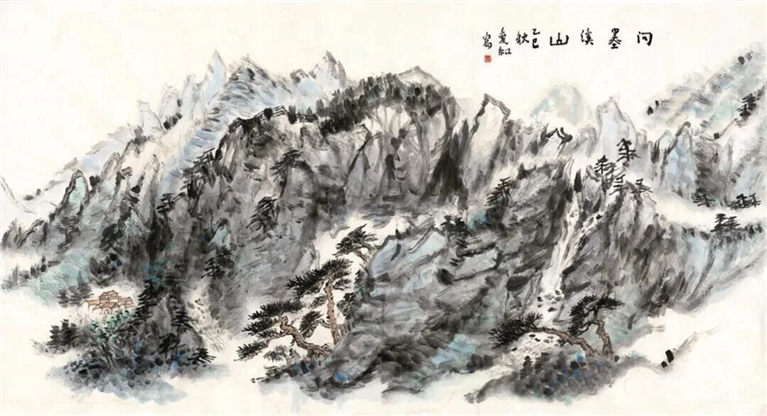 问墨溪山
乙巳
秋
爱红
写